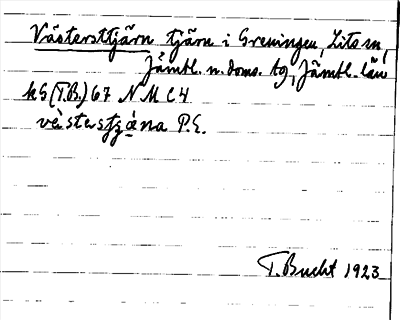 Västersttjärn tjärn i Greningen, Lits sn,
Jämtl. n. doms. tg, Jämtl. län
kG (T.B.) 67 N M C 4
vèsterstȷ̌z̨ạ̀na P.E.
T. Bucht 1923